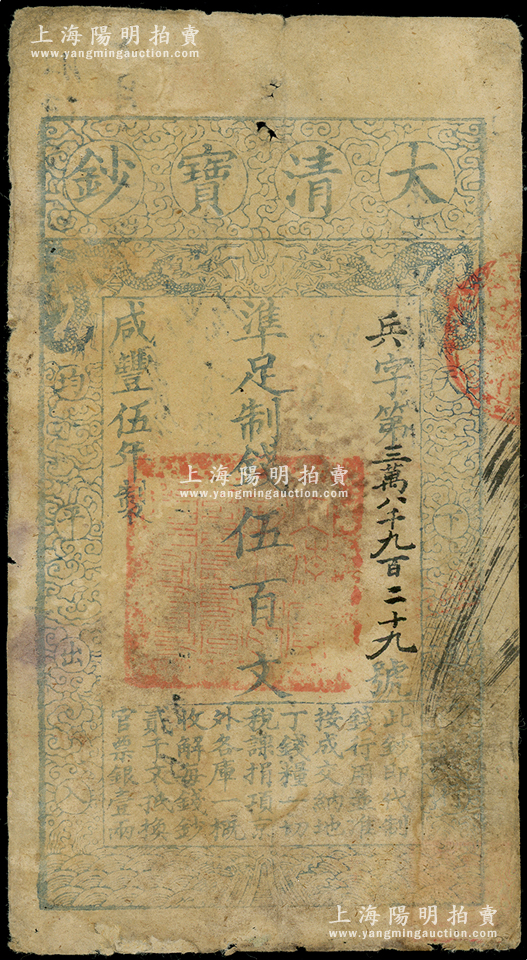 上海陽明拍賣
www.yangmingauction.com
大清寶鈔
天下
均平
出入
兵字第三萬八千九百二十九號
準足制錢伍百文
咸豐伍年製
此鈔即代制
錢行用並准
按成交納地
丁錢糧一切
稅課捐項京
外各庫一概
收解每錢鈔
貳千文抵換
官票銀壹兩
上海陽明拍賣
www.yangmingauction.com
上海陽明拍賣
www.yangmingauction.com